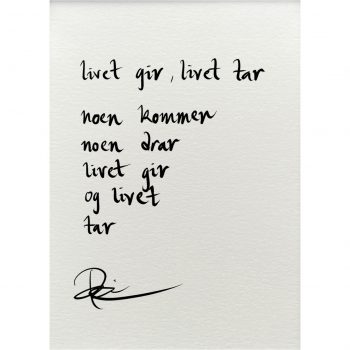 livet gir, livet tar
noen kommer
noen drar
livet gir
og livet
tar